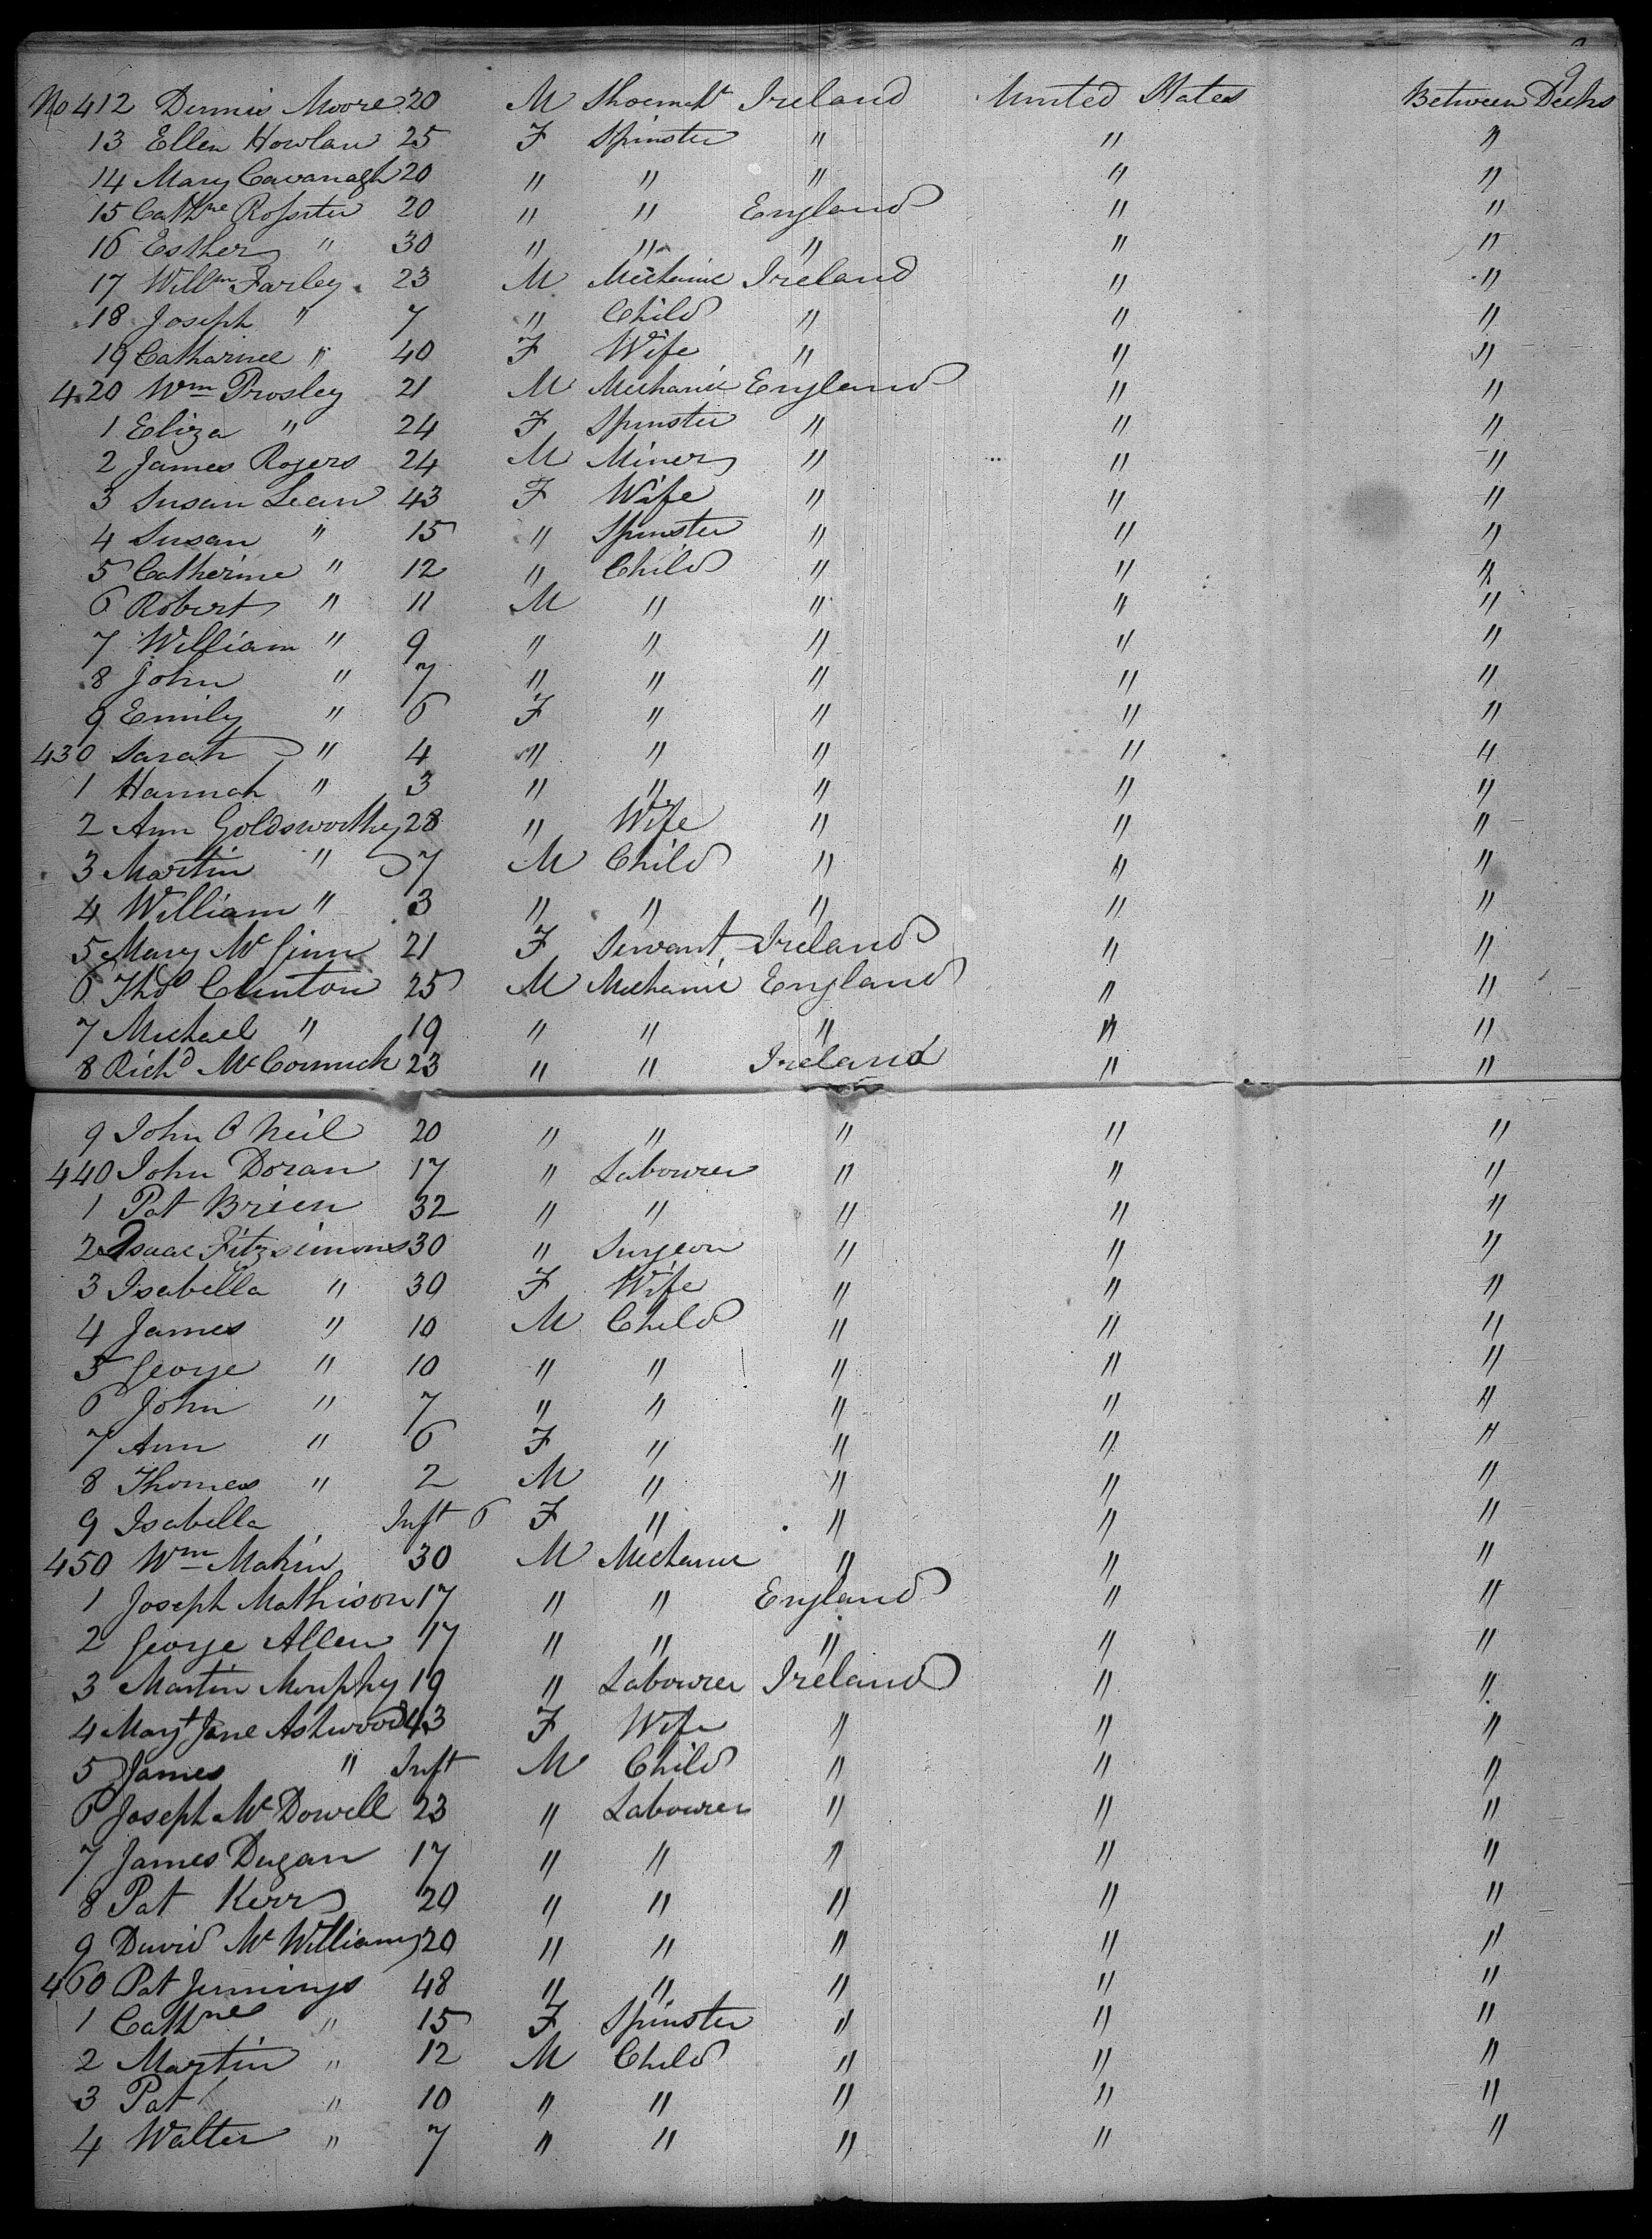 9
No 412 Dennis Moore 20 M Shoemakr Ireland United States Between Decks
13 Ellen Howlan 25 F Spinster " " "
14 Mary Cavanagh 20 " " " " "
15 Cathne Rossiter 20 " " England " "
16 Esther " 30 " " " " "
17 Willm Farley 23 M Mechanic Ireland " "
18 Joseph " 7 " Child " " "
19 Catharine " 40 F Wife " " "
420 Wm Prosley 21 M Mechanic England " "
1 Eliza " 24 F Spinster " " "
2 James Rogers 24 M Miner " " "
3 Susan Lean 43 F Wife " " "
4 Susan " 15 " Spinster " " "
5 Catherine " 12 " Child " " "
6 Robert " 11 M " " " "
7 William " 9 " " " " "
8 John " 7 " " " " "
9 Emily " 6 F " " " "
430 Sarah " 4 " " " " "
1 Hannah " 3 " " " " "
2 Ann Goldsworthy 28 " Wife " " "
3 Martin " 7 M Child " " "
4 William " 3 " " " " "
5 Mary Mc Ginn 21 F Servant Ireland " "
6 Thos Clinton 25 M Mechanic England " "
7 Michael " 19 " " " " "
8 Richd McCormick 23 " " Ireland " "
9 John O Neil 20 " " " " "
440 John Doran 17 " Labourer " " "
1 Pat Brien 32 " " " " "
2 Isaac Fitzsimons 30 " Surgeon " " "
3 Isabella " 30 F Wife " " "
4 James " 10 M Child " " "
5 George " 10 " " " " "
6 John " 7 " " " " "
7 Ann " 6 F " " " "
8 Thomas " 2 M " " " "
9 Isabella Inft 6 F " " " "
450 Wm Makin 30 M Mechanic " " "
1 Joseph Mathison 17 " " England " "
2 George Allen 17 " " " " "
3 Martin Murphy 19 " Labourer Ireland " "
4 Mary Jane Ashwood 43 F Wife " " "
5 James " Inft M Child " " "
6 Joseph Mc Dowell 23 " Labourer " " "
7 James Dugan 17 " " " " "
8 Pat Kerr 20 " " " " "
9 David Mc Williams 20 " " " " "
460 Pat Jennings 48 " " " " "
1 Cathne " 15 F Spinster " " "
2 Martin " 12 M Child " " "
3 Pat " 10 " " " " "
4 Walter " 7 " " " " "